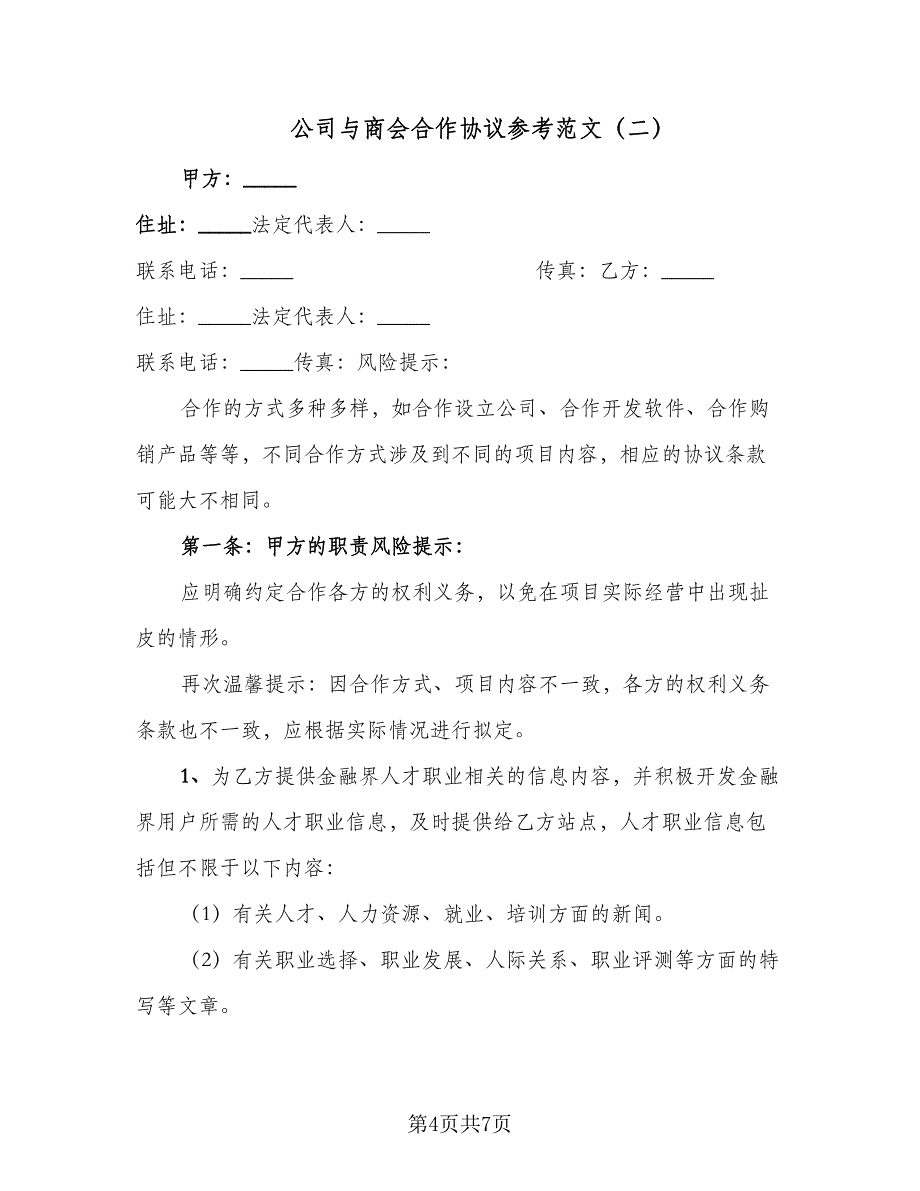 公司与商会合作协议参考范文（二）
甲方：_____
住址：_____法定代表人：_____
联系电话：_____ 传真：乙方：_____
住址：_____法定代表人：_____
联系电话：_____传真：风险提示：
合作的方式多种多样，如合作设立公司、合作开发软件、合作购
销产品等等，不同合作方式涉及到不同的项目内容，相应的协议条款
可能大不相同。
第一条：甲方的职责风险提示：
应明确约定合作各方的权利义务，以免在项目实际经营中出现扯
皮的情形。
再次温馨提示：因合作方式、项目内容不一致，各方的权利义务
条款也不一致，应根据实际情况进行拟定。
1、为乙方提供金融界人才职业相关的信息内容，并积极开发金融
界用户所需的人才职业信息，及时提供给乙方站点，人才职业信息包
括但不限于以下内容：
（1）有关人才、人力资源、就业、培训方面的新闻。
（2）有关职业选择、职业发展、人际关系、职业评测等方面的特
写等文章。
第4页共7页